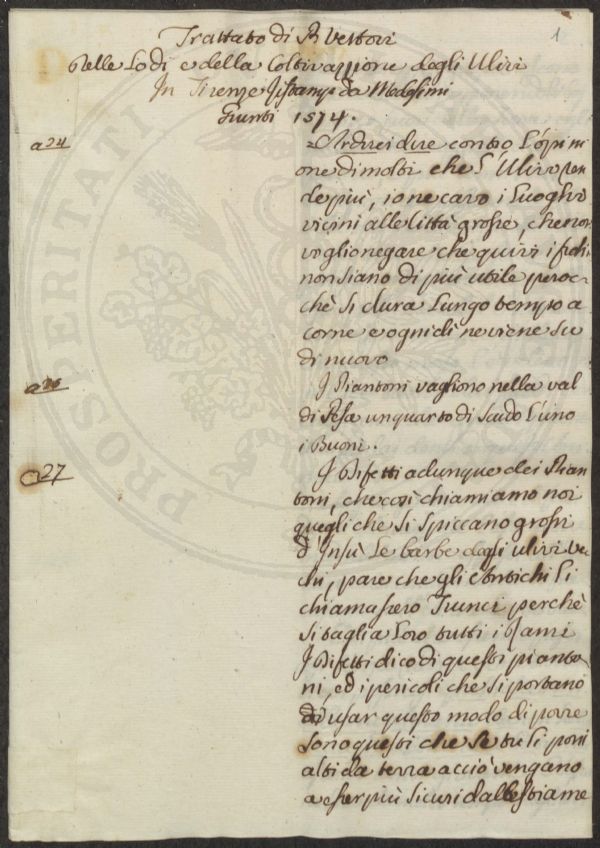 1
Trattato di P Vettori
Nelle Lodi e della Coltivazzione degli Ulivi
In Firenze Stampa da Medesimi
Giunti 1574.
a 24
Ardirei dire contro l'opini
one di molti che l'Ulivo ren
de più, io ne cavo i luoghi
vicini alle città grosse, che non
voglio negare che quivi i frutti
non siano di più utile peroc-
chè si dura lungo tempo a
corne e ogni dì ne viene su
di nuovo
a 26
I Piantoni vagliono nella val
di Pesa un quarto di Scudo l'uno
i Buoni.
a 27
I Difetti adunque dei Pian
toni, che così chiamiamo noi
quegli che si spiccano grossi
d'insù le barbe degli ulivi vec
chi, pare che gli Antichi li
chiamassero Trunci perchè
si taglia loro tutti i Rami
I Difetti dico di questi pianto
ni, ed i pericoli che si portano
di usar questo modo di porre
sono questi che se tu li poni
alti da terra acciò vengano
a esser più sicuri dal bestiame
PROSPERITATI